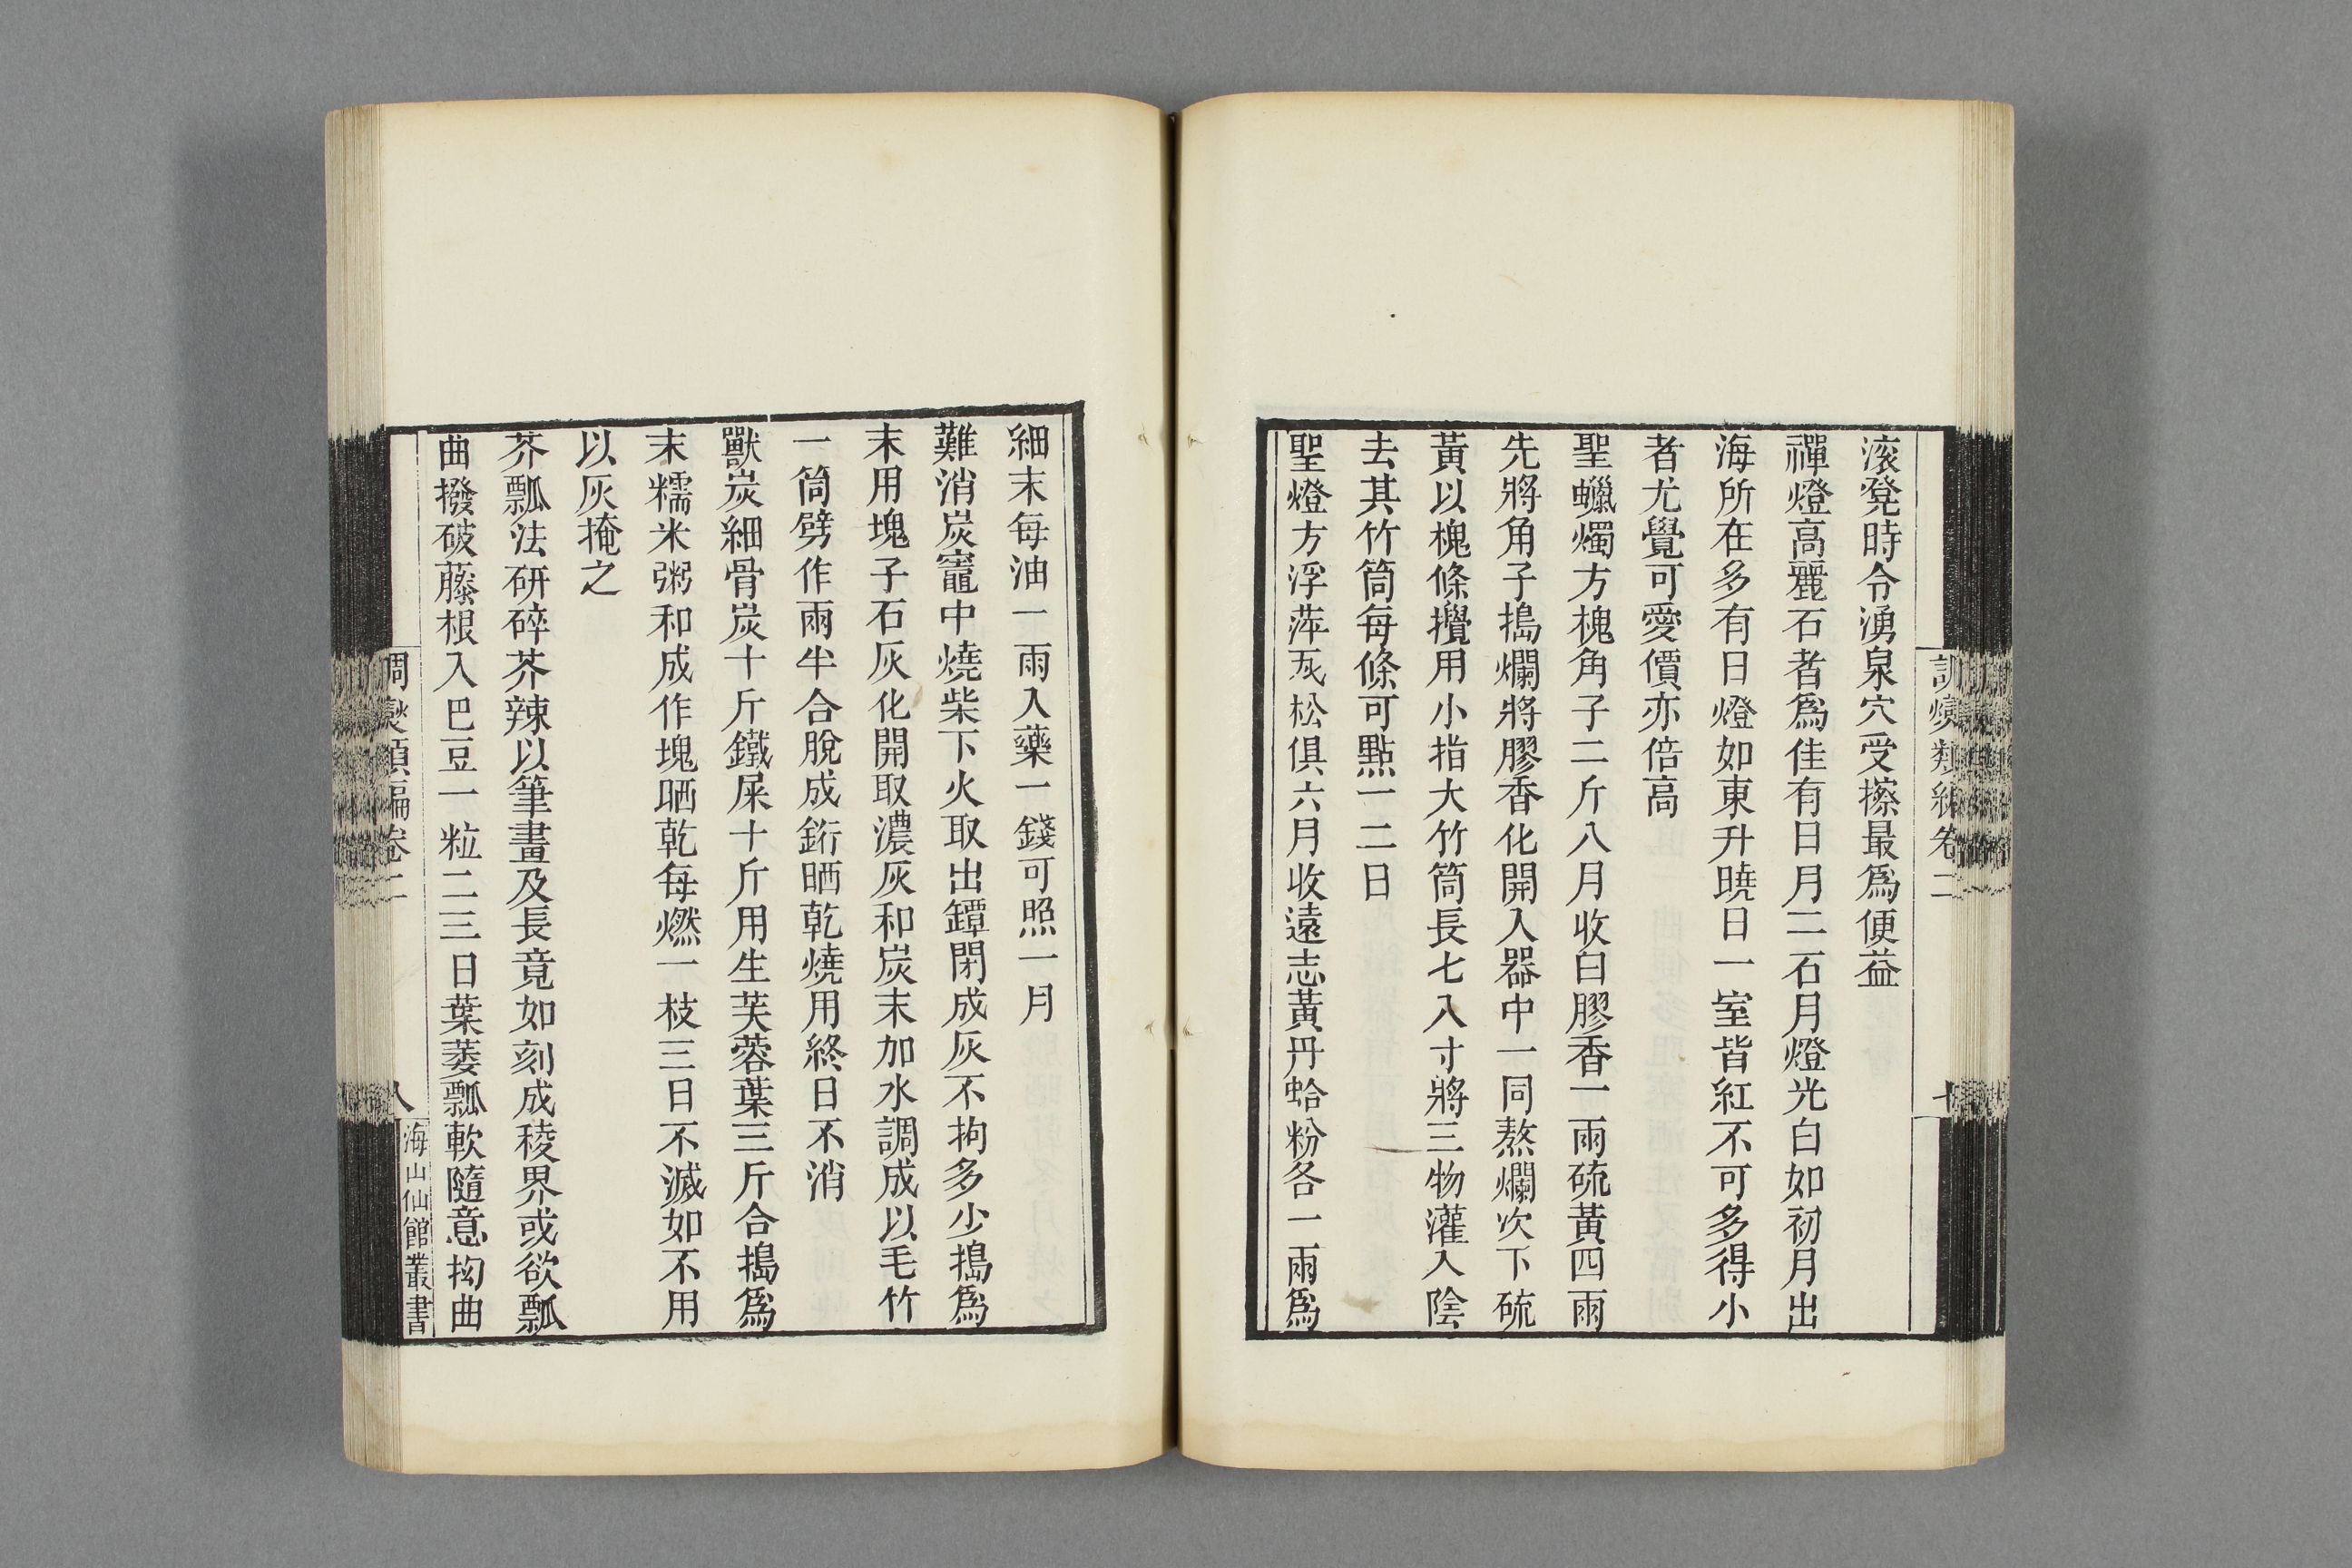 滚凳時令湧泉穴受擦最爲便益
禪燈高麗石者爲佳有日月二石月燈光白如初月出
海所在多有日燈如東升曉日一室皆紅不可多得小
者尤覺可愛價亦倍高
聖蠟燭方槐角子二斤八月收白膠香一兩硫黃四兩
先將角子搗爛將膠香化開入器中一同熬爛次下硫
黃以槐條攪用小指大竹筒長七八寸將三物灌入陰
去其竹筒每條可點一二日
聖燈方浮萍瓦松俱六月收遠志黃丹蛤粉各一兩爲
細末每油一兩入藥一錢可照一月
難消炭竈中燒柴下火取出罈閉成灰不拘多少搗爲
末用塊子石灰化開取濃灰和炭末加水調成以毛竹
一筒劈作兩半合脫成錠晒乾燒用終日不消
獸炭細骨炭十斤鐵屎十斤用生芙蓉葉三斤合搗爲
末糯米粥和成作塊晒乾每燃一枝三日不滅如不用
以灰掩之
芥瓢法研碎芥辣以筆畫及長竟如刻成稜界或欲瓢
曲撥破藤根入巴豆一粒二三日葉萎瓢軟隨意拗曲
調燮類編卷二
八
海山仙館叢書